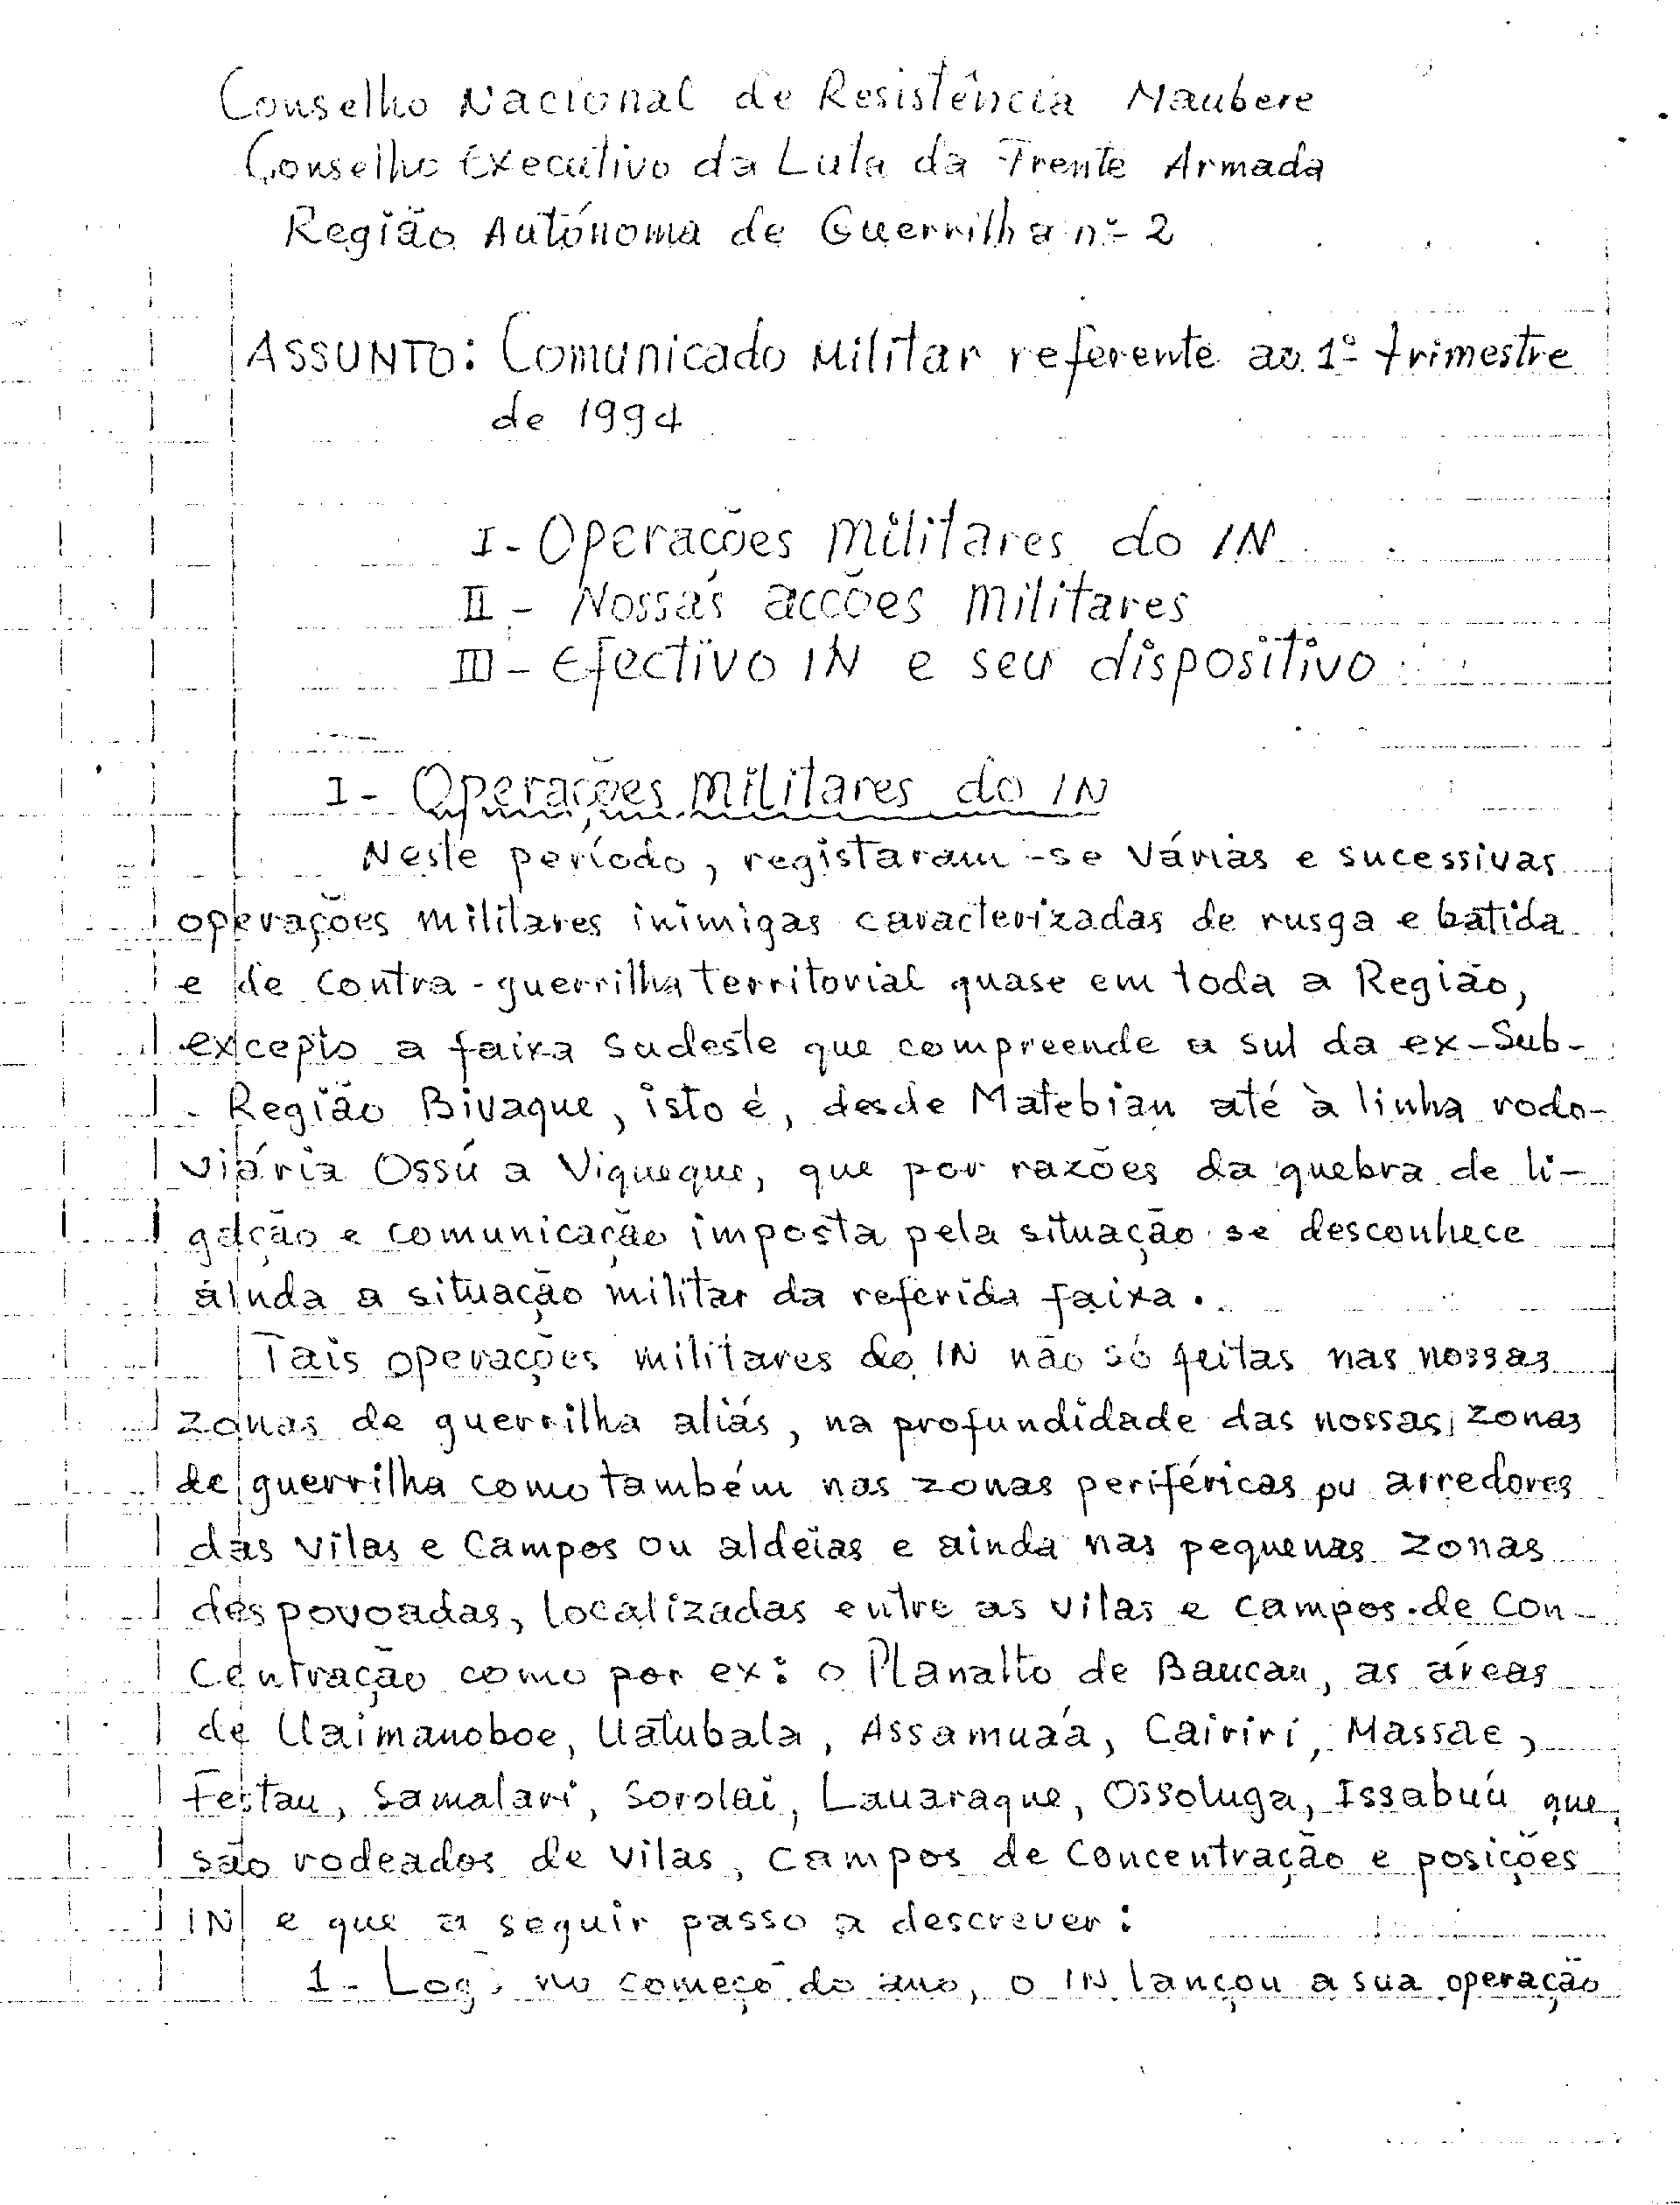 Conselho Nacional de Resistência Maubere
Conselho Executivo da Luta da Frente Armada
Região Autónoma de Guerrilha nº 2
ASSUNTO: Comunicado Militar referente ao 1º trimestre
de 1994
I - Operações Militares do IN
II - Nossas acções Militares
III - Efectivo IN e seu dispositivo
I - Operações Militares do IN
Neste período, registaram-se várias e sucessivas
operações militares inimigas caracterizadas de rusga e batida
e de contra-guerrilha territorial quase em toda a Região,
excepto a faixa sudeste que compreende a sul da ex-Sub-
Região Bivaque, isto é, desde Matebian até à linha rodo-
viária Ossú a Viqueque, que por razões da quebra de li-
gação e comunicação imposta pela situação se desconhece
ainda a situação militar da referida faixa.
Tais operações militares do IN não só feitas nas nossas
zonas de guerrilha aliás, na profundidade das nossas zonas
de guerrilha como também nas zonas periféricas ou arredores
das vilas e Campos ou aldeias e ainda nas pequenas zonas
despovoadas, localizadas entre as vilas e campos de Con-
centração como por ex: o Planalto de Baucau, as áreas
de Uaimanoboe, Uatubala, Assamuáa, Cairirí, Massae,
Festau, Samalari, Sorolai, Lauaraque, Ossoluga, Issabuú que
são rodeados de vilas, Campos de Concentração e posições
IN e que a seguir passo a descrever:
1 - Logo no começo do ano, o IN lançou a sua operação